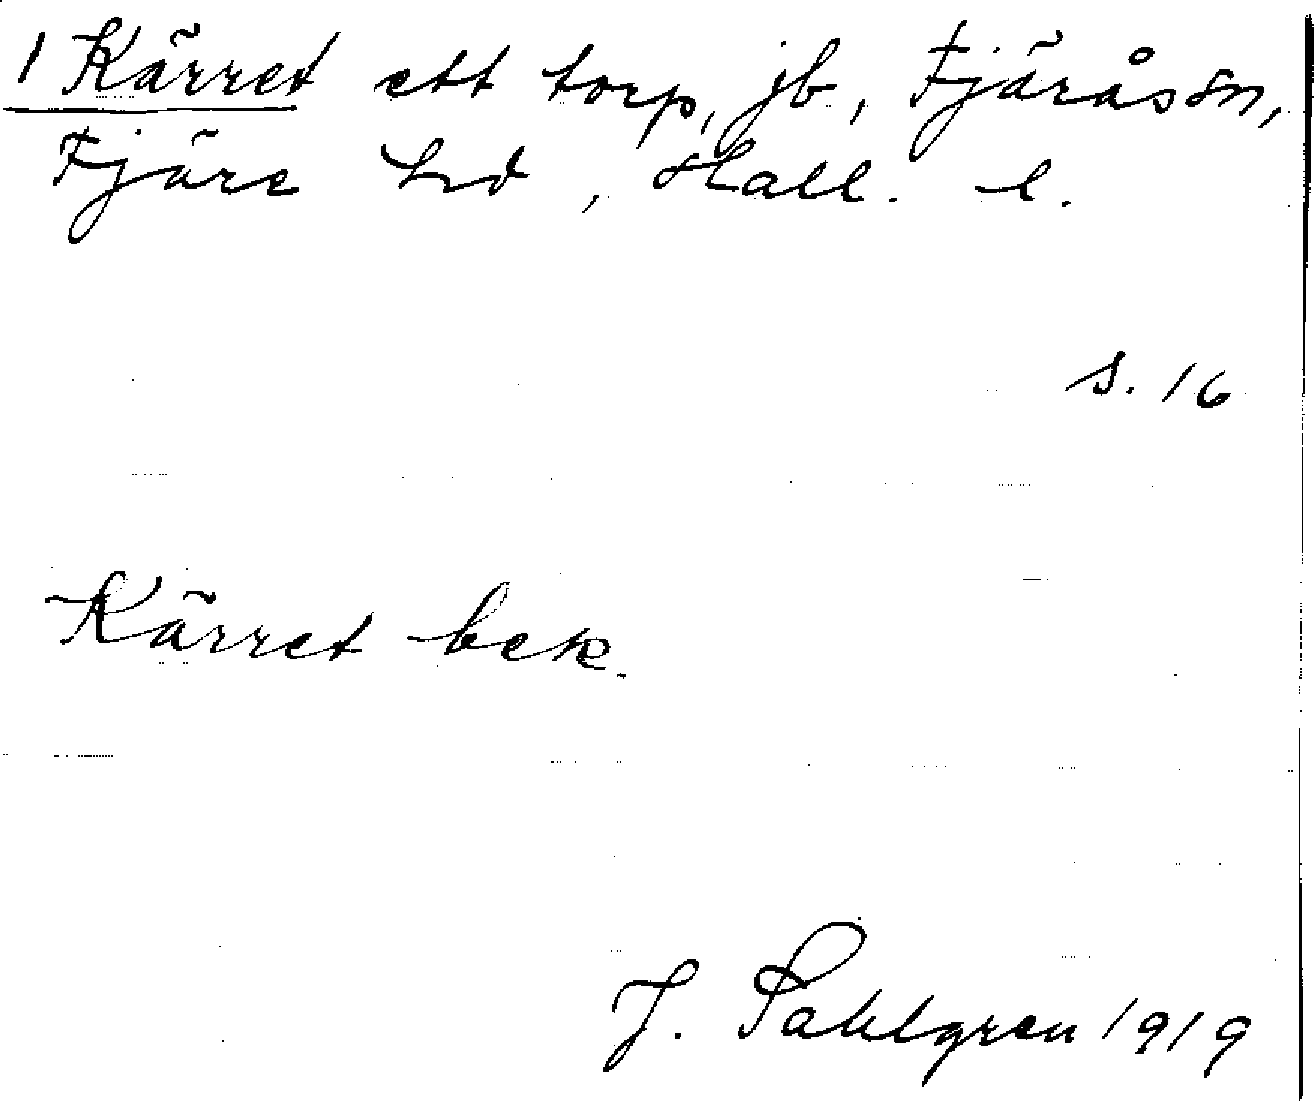 1 Kärret ett torp, jb, Fjärås sn,
Fjäre hd, Hall. l.
s. 16
Kärret bek.
J. Sahlgren 1919